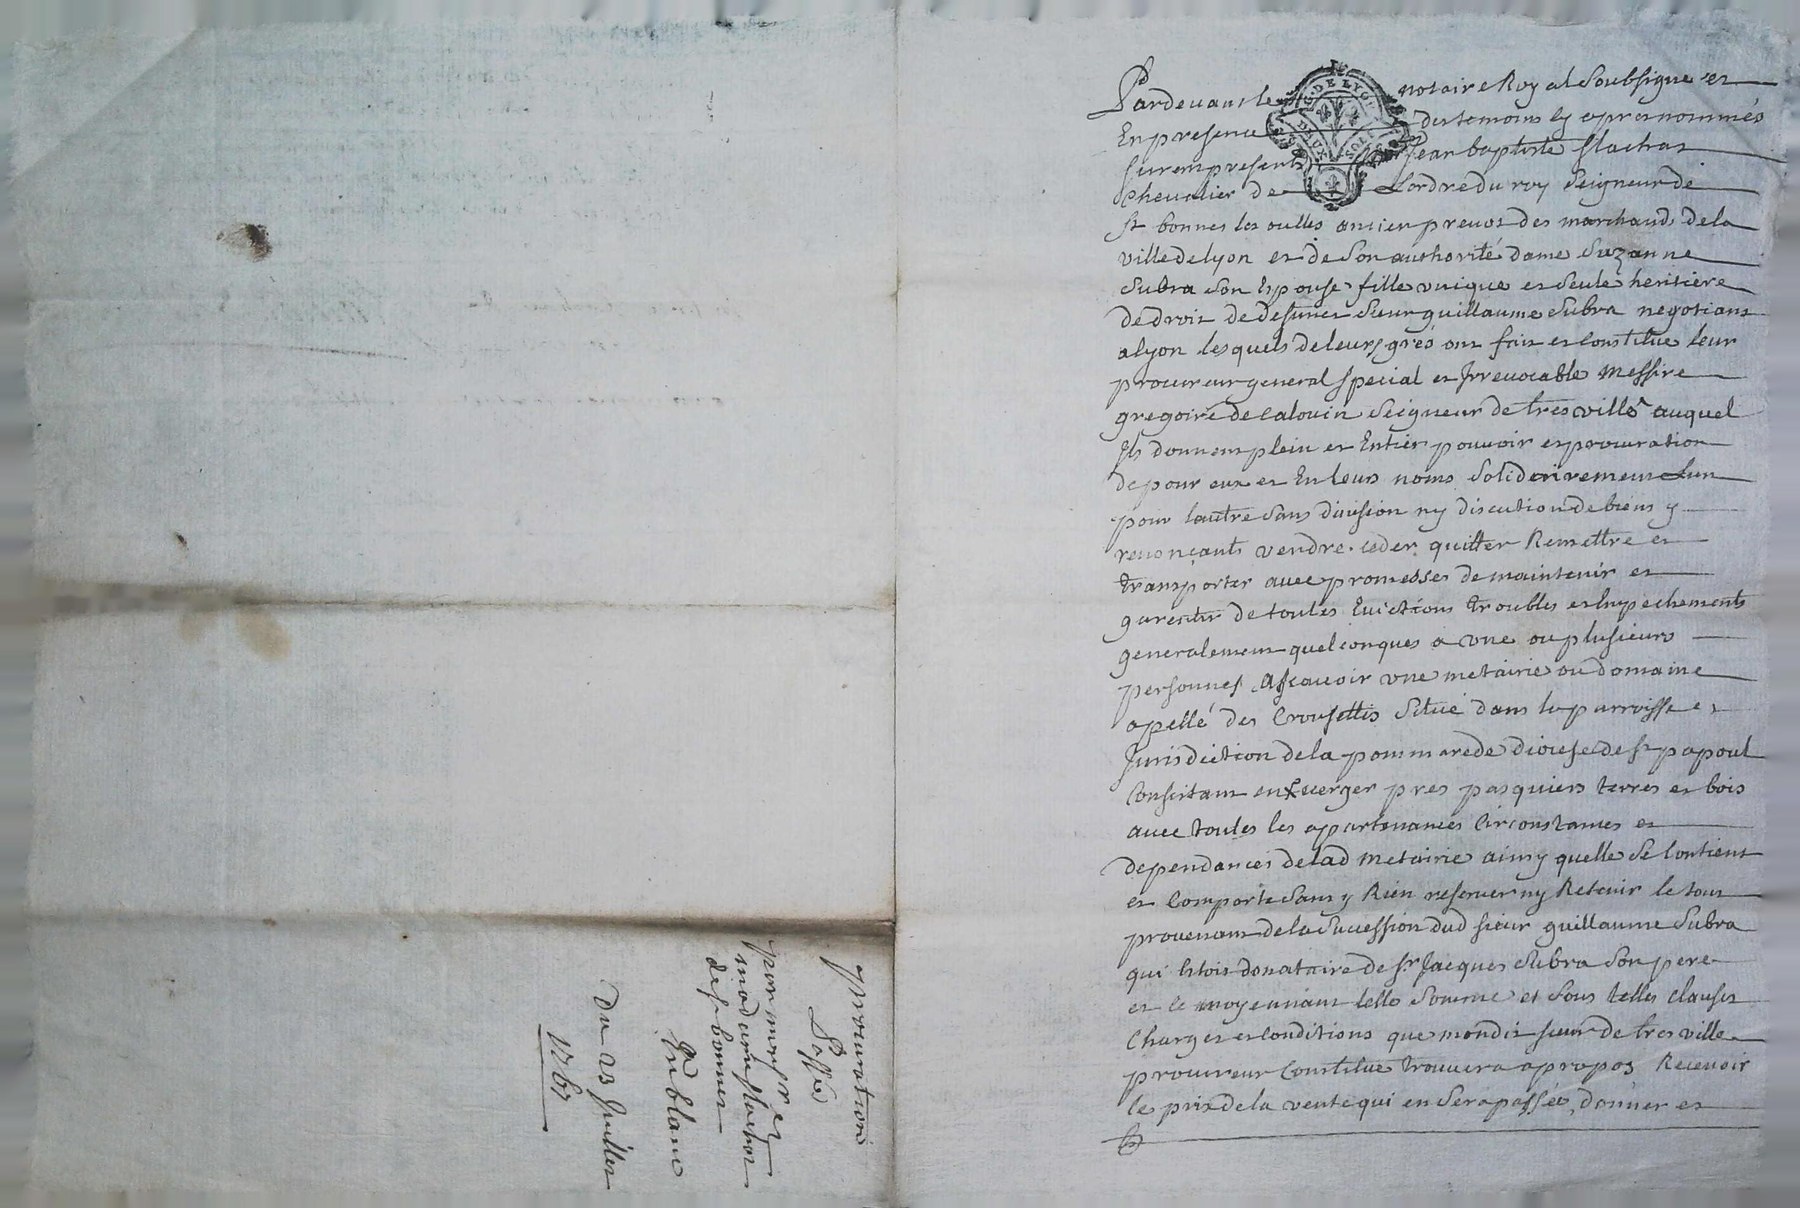 Pardevant le notaire Royal Soubsigné et
En presence des temoins cy apres nommés
furent presents Jean baptiste flachat
Chevalier de Lordre du roy Seigneur de
st bonnet les oulles ancien prevot des marchands de la
ville de lyon et de Son authorité dame Suzanne
Subra Son Epouse fille unique et Seule heritiere
de droit de defunct Sieur guillaume Subra negotiant
a lyon lesquels de leurs grés ont fait et Constitué leur
procureur general special et Irrevocable Messire
gregoire de Calouin Seigneur de tresville auquel
Ils donnent plein et Entier pouvoir et procuration
de pour eux et En leurs noms Soliderirement Lun
pour lautre Sans division ny discution de biens y
renonçants vendre ceder quitter Remettre et
transporter avec promesses de maintenir et
garentir de toutes Evictions troubles et Empechements
generalement quelconques a une ou plusieurs
personnes Ascavoir une metairie ou domaine
apellé des Crousettes Situé dans la parroisse et
Jurisdiction de la pommarede diocese de st papoul
Consistant en verger pres pasquiers terres et bois
avec toutes les appartenances Circonstances et
dependances de lad metairie ainsy quelle Se Contient
et Comporte Sans y Rien reserver ny Retenir le tout
provenant de la Succession dud sieur guillaume Subra
qui Etoit donataire de sr Jacques Subra Son pere
et ce moyennant telle Somme et Sous telles clauses
Charges et Conditions que mondit sieur de tresville
procureur Constitué trouvera apropos Recevoir
le prix de la vente qui en Sera passée, donner et
procuration
passée
par messire et
mad ame flachat
de st bonnet
En blanc
Du 23 Juillet
1767